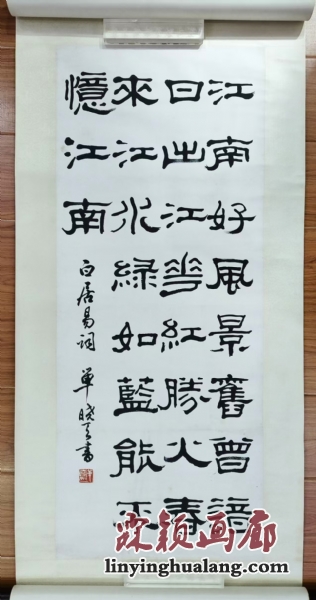 江南好風景舊曾諳
日出江花紅勝火春
來江水綠如藍能不
憶江南
白居易詞 單曉天書
霖颖画廊
linyinghualang.com